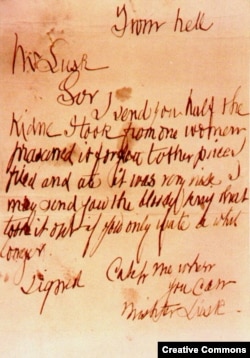 From hell
Mr Lusk
Sor
I send you half the
Kidne I took from one women
prasarved it for you tother piece I
fried and ate it was very nise I
may send you the bloody knif that
took it out if you only wate a whil
longer
Signed
Catch me when
you Can
Mishter Lusk
Creative Commons